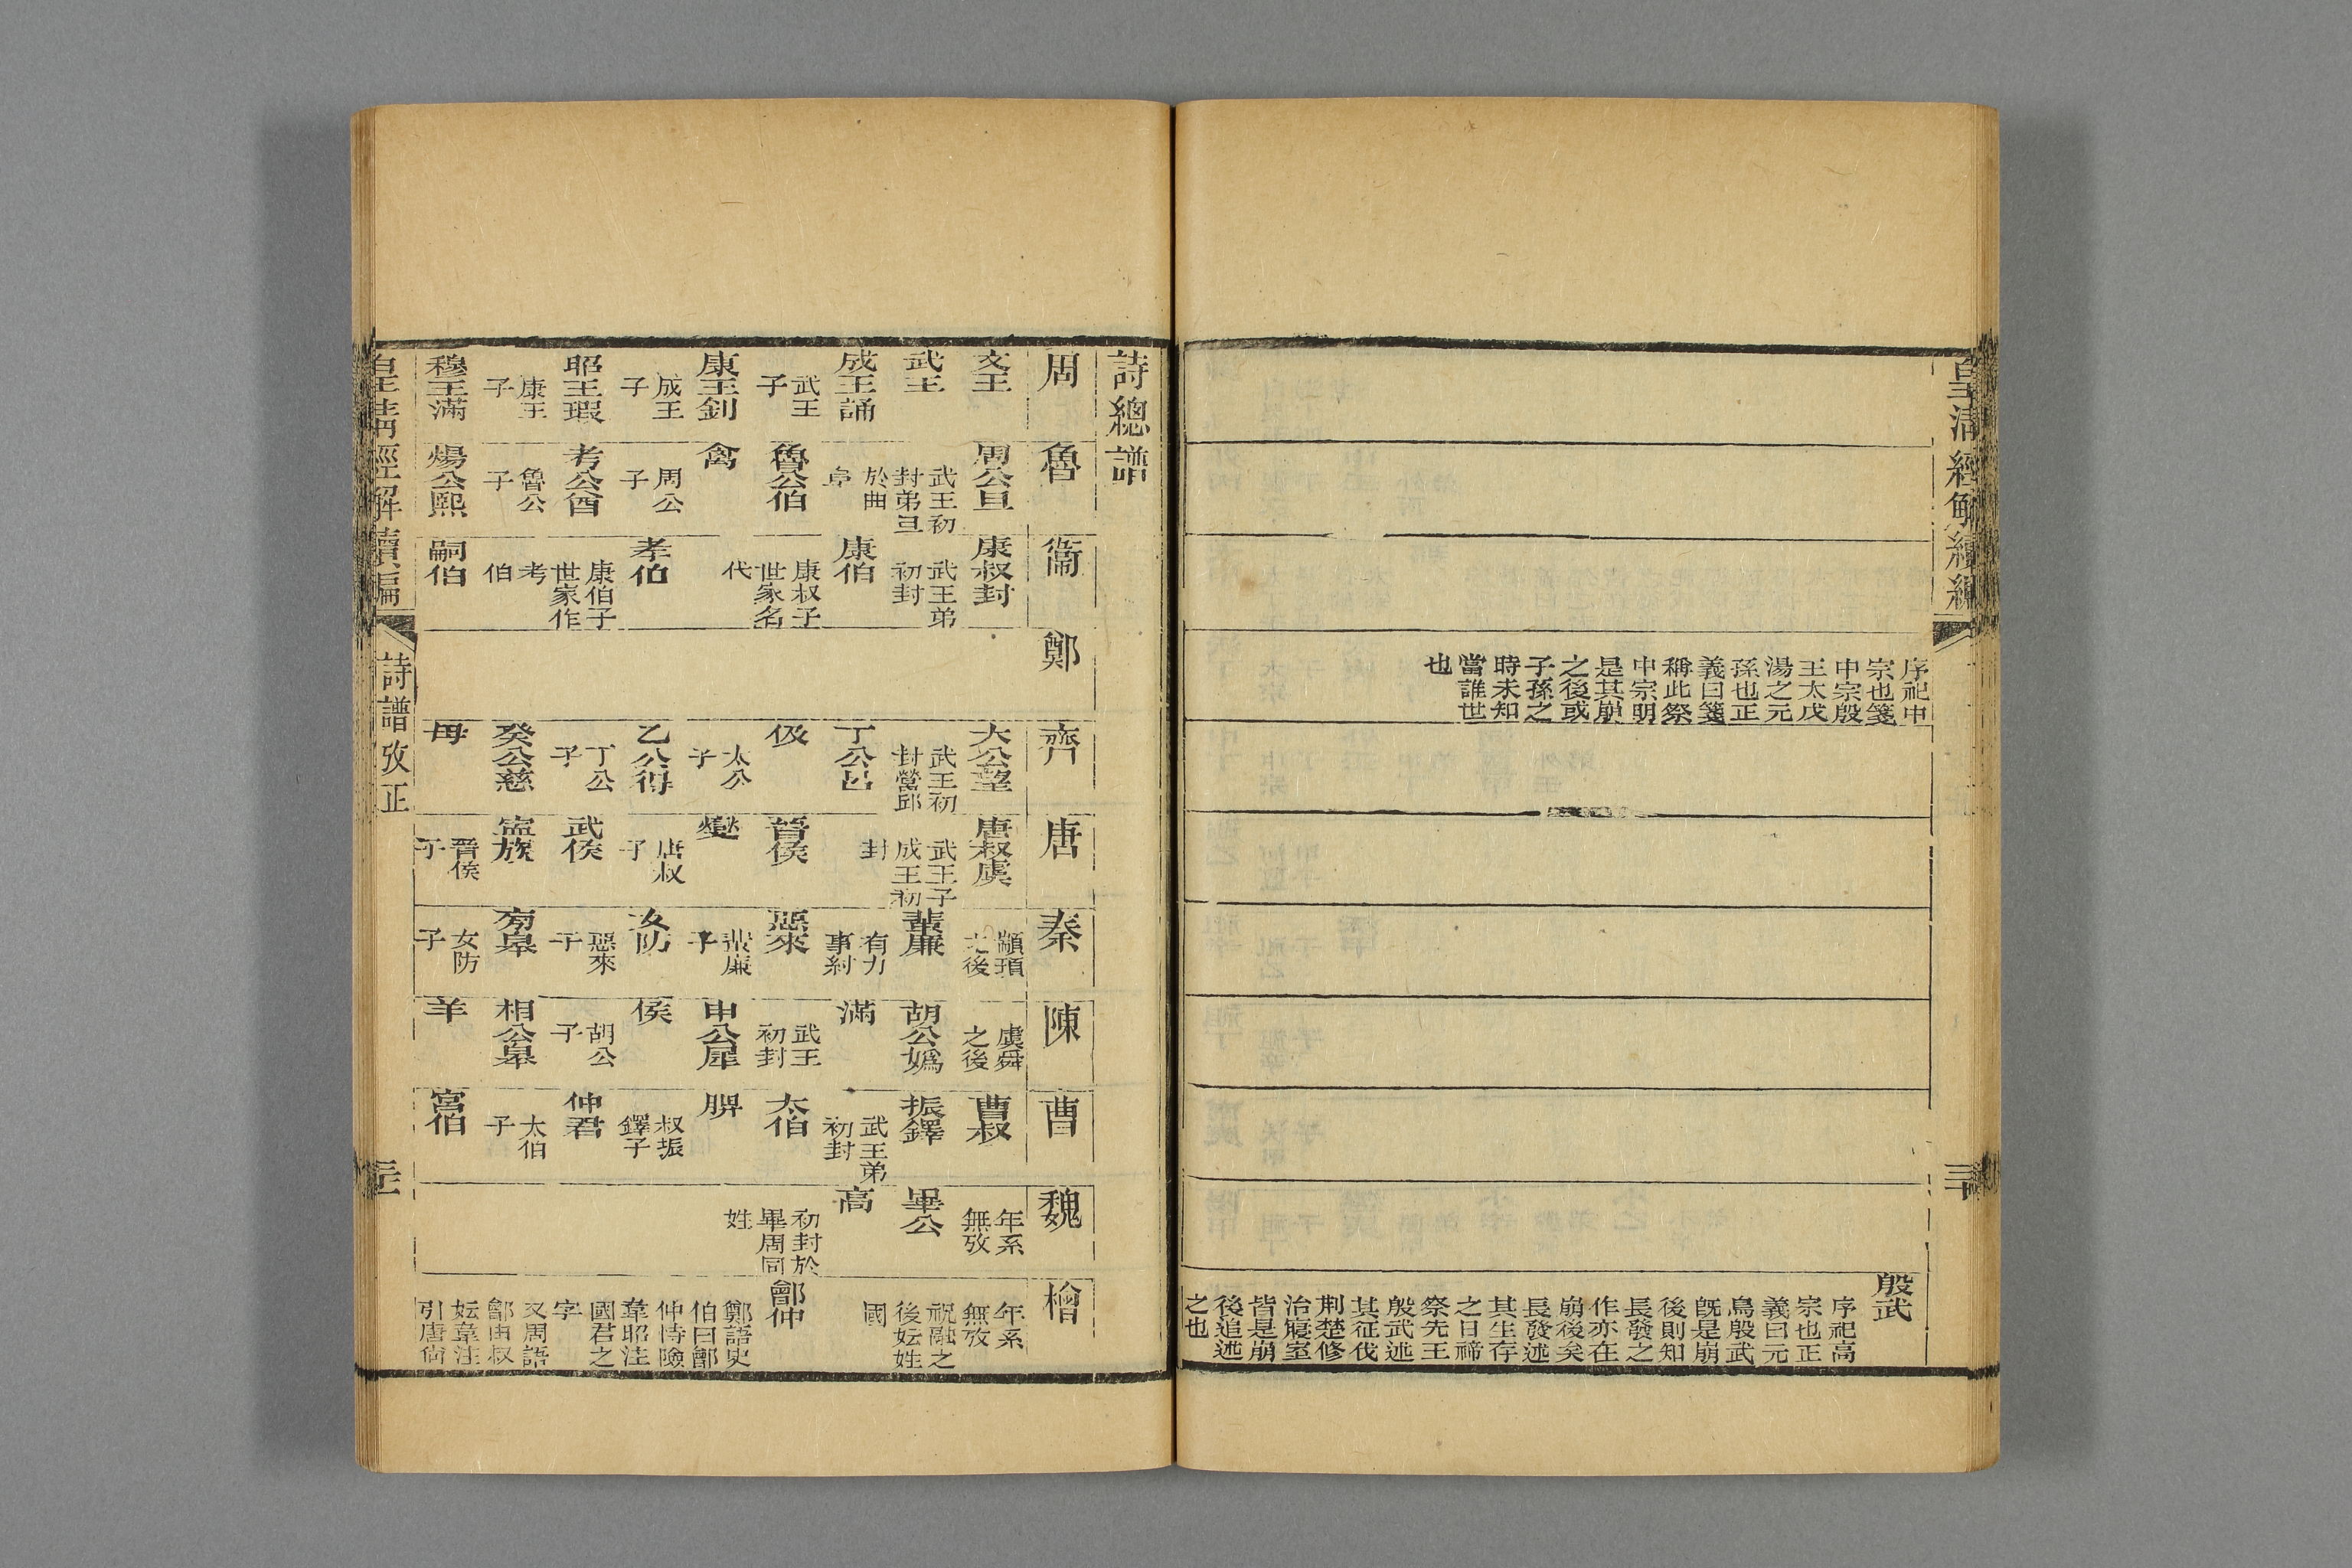 皇清經解續編
三十
序祀中
宗也箋
中宗殷
王太戊
湯之元
孫也正
義曰箋
稱此祭
中宗明
是其崩
之後或
子孫之
時未知
當誰世
也
殷武
序祀高
宗也正
義曰元
鳥殷武
旣是崩
後則知
長發之
作亦在
崩後矣
長發述
其生存
之日禘
祭先王
殷武述
其征伐
荆楚修
治寢室
皆是崩
後追述
之也
詩總譜
周
文王
武王
成王誦
武王
子
康王釗
成王
子
昭王瑕
康王
子
穆王滿
魯
周公旦
武王初
封弟旦
於曲
阜
魯公伯
禽
周公
子
考公酋
魯公
子
煬公熙
衞
康叔封
武王弟
初封
康伯
康叔子
世家名
代
孝伯
康伯子
世家作
考
伯
嗣伯
鄭
齊
大公望
武王初
封營邱
丁公呂
伋
太公
子
乙公得
丁公
子
癸公慈
母
唐
唐叔虞
武王子
成王初
封
晉侯
燮
唐叔
子
武侯
寍族
晉侯
子
秦
顓頊
之後
蜚廉
有力
事紂
惡來
蜚廉
子
女防
惡來
子
旁皋
女防
子
陳
虞舜
之後
胡公嬀
滿
武王
初封
申公犀
侯
胡公
子
相公皋
羊
曹
曹叔
振鐸
武王弟
初封
太伯
脾
叔振
鐸子
仲君
太伯
子
宮伯
魏
年系
無攷
畢公
高
初封於
畢周同
姓
檜
年系
無攷
祝融之
後妘姓
國
鄶仲
鄭語史
伯曰鄶
仲恃險
韋昭注
國君之
字
又周語
鄶由叔
妘韋注
引唐尙
皇淸經解續編
詩譜攷正